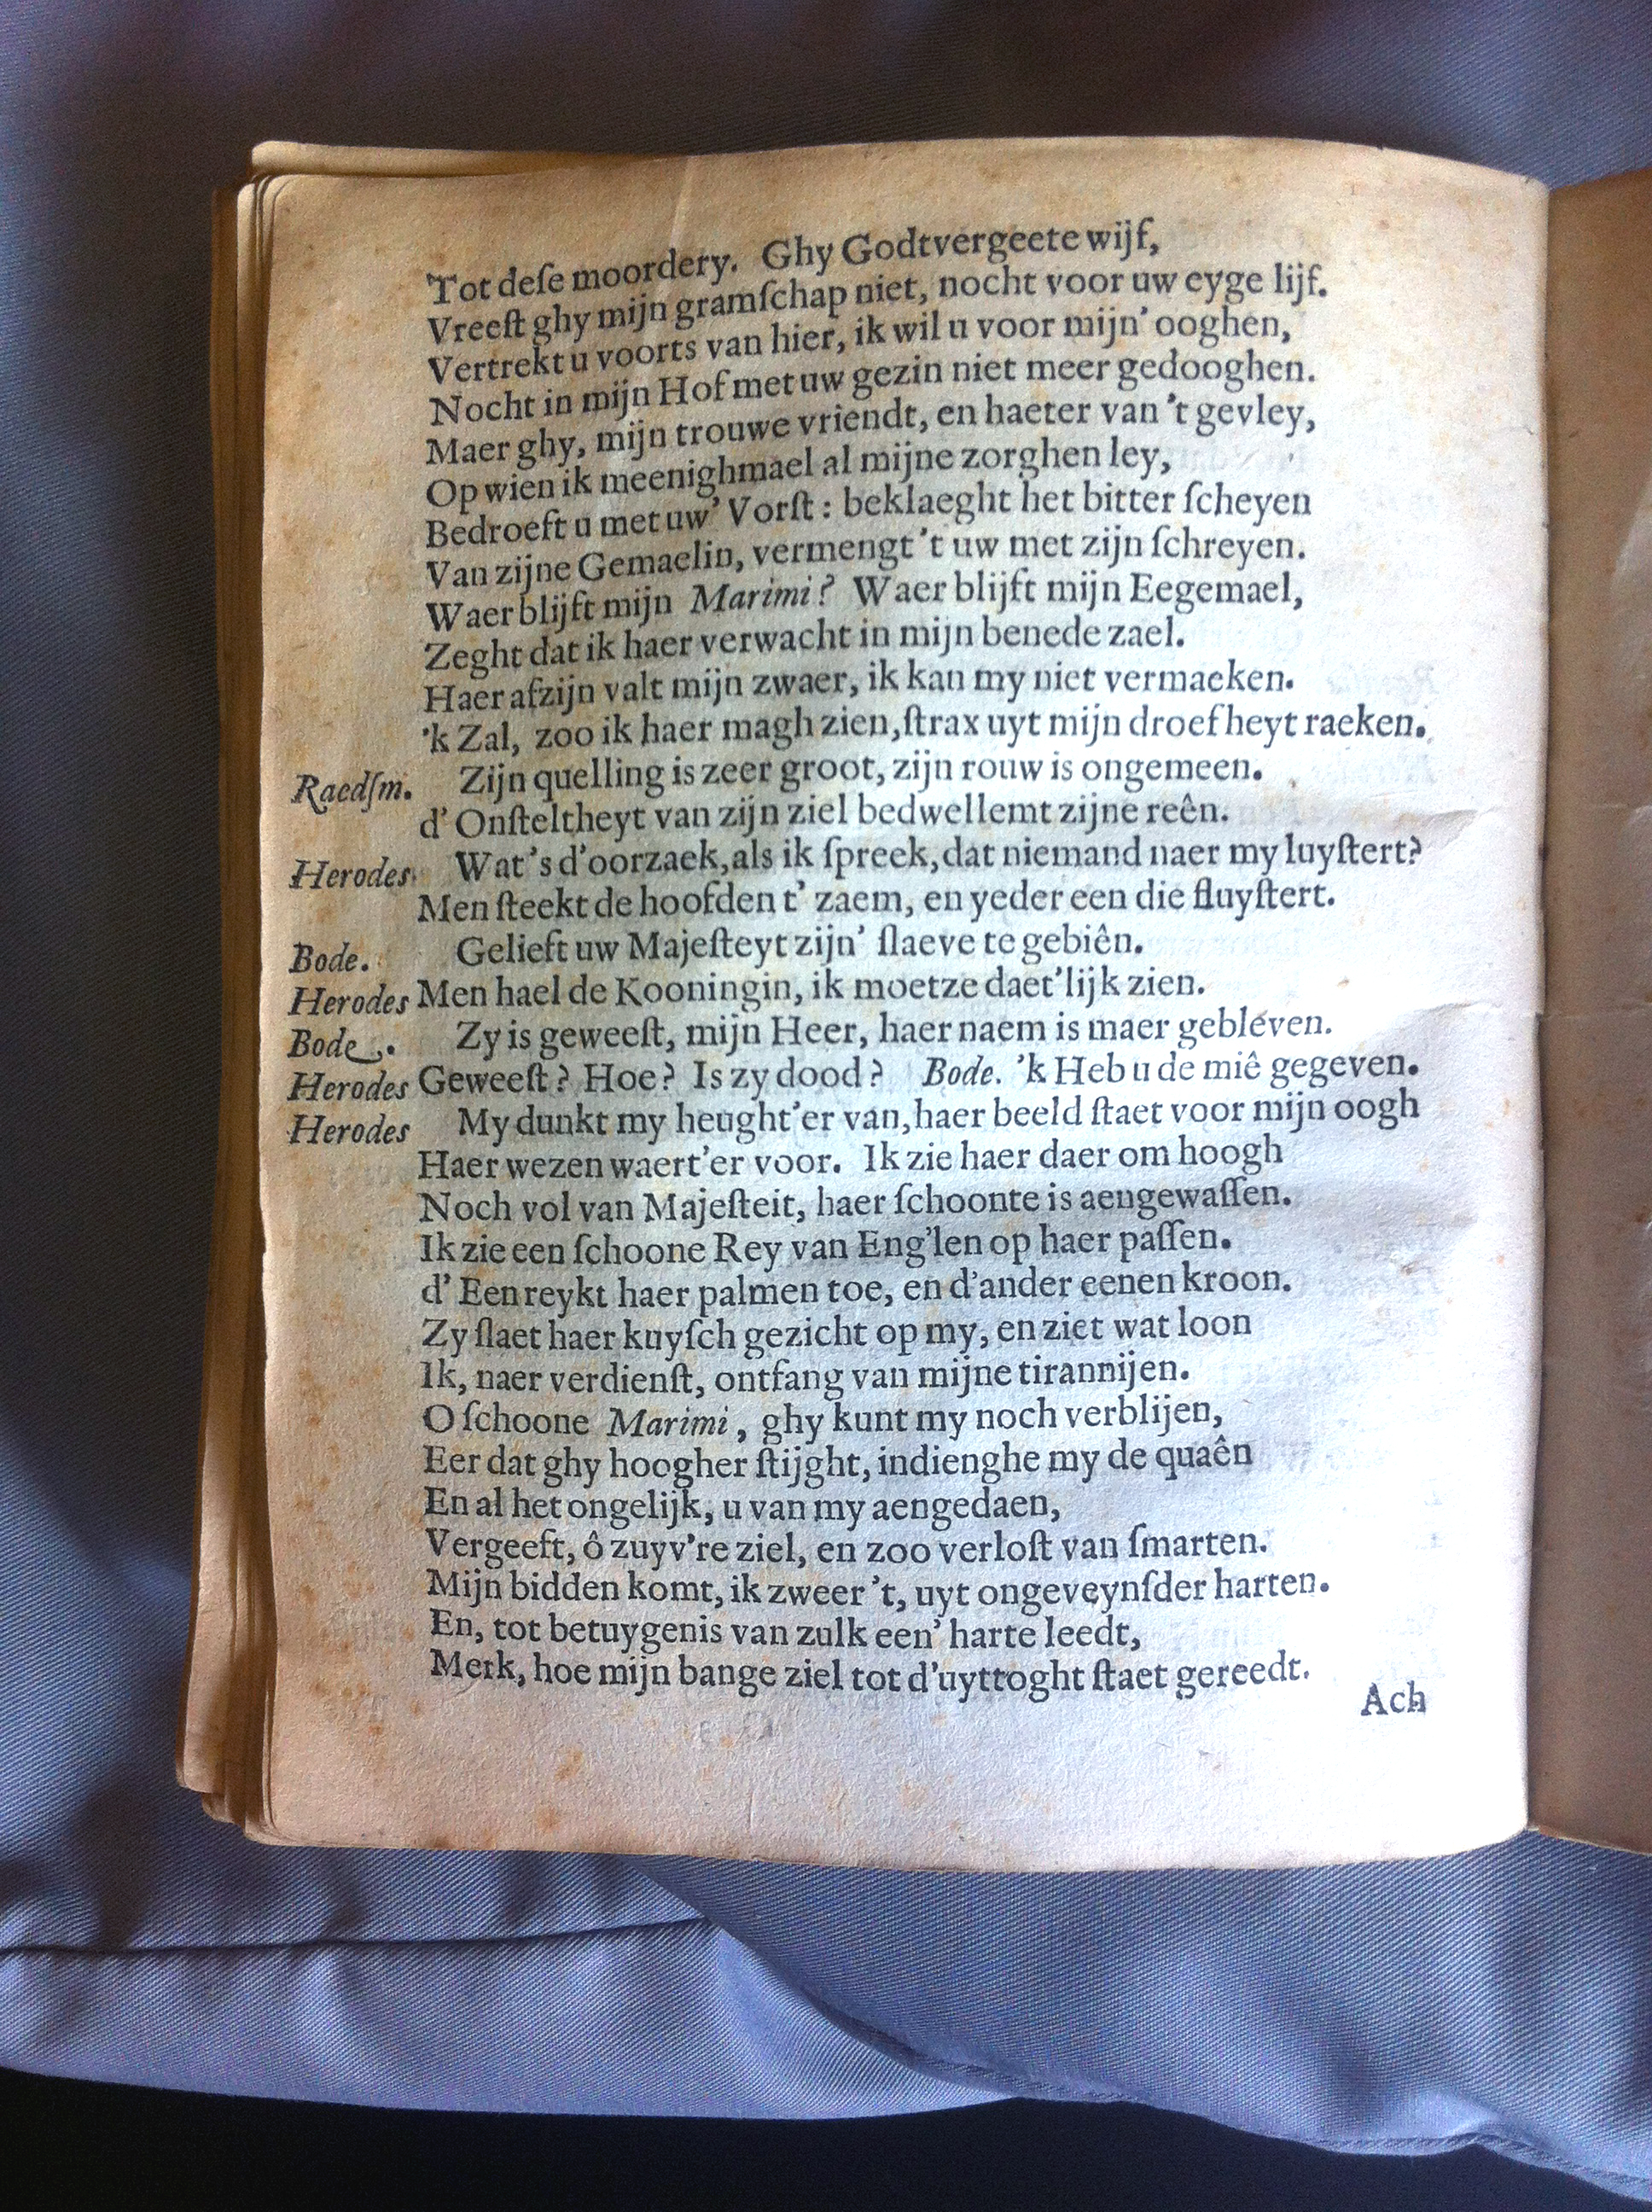 Tot deſe moordery. Ghy Godtvergeete wijf,
Vreeſt ghy mijn gramſchap niet, nocht voor uw eyge lijf.
Vertrekt u voorts van hier, ik wil u voor mijn' ooghen,
Nocht in mijn Hof met uw gezin niet meer gedooghen.
Maer ghy, mijn trouwe vriendt, en haeter van 't gevley,
Op wien ik meenighmael al mijne zorghen ley,
Bedroeft u met uw' Vorſt: beklaeght het bitter ſcheyen
Van zijne Gemaelin, vermengt 't uw met zijn ſchreyen.
Waer blijft mijn Marimi? Waer blijft mijn Eegemael,
Zeght dat ik haer verwacht in mijn benede zael.
Haer afzijn valt mijn zwaer, ik kan my niet vermaeken.
'k Zal, zoo ik haer magh zien, ſtrax uyt mijn droefheyt raeken.
Raedſm. Zijn quelling is zeer groot, zijn rouw is ongemeen.
d' Onſteltheyt van zijn ziel bedwellemt zijne reên.
Herodes Wat's d'oorzaek, als ik ſpreek, dat niemand naer my luyſtert?
Men ſteekt de hoofden t' zaem, en yeder een die fluyſtert.
Bode. Gelieft uw Majeſteyt zijn' ſlaeve te gebiên.
Herodes Men hael de Kooningin, ik moetze daet'lijk zien.
Bode. Zy is geweeſt, mijn Heer, haer naem is maer gebleven.
Herodes Geweeſt? Hoe? Is zy dood? Bode. 'k Heb u de miê gegeven.
Herodes My dunkt my heught'er van, haer beeld ſtaet voor mijn oogh
Haer wezen waert'er voor. Ik zie haer daer om hoogh
Noch vol van Majeſteit, haer ſchoonte is aengewaſſen.
Ik zie een ſchoone Rey van Eng'len op haer paſſen.
d' Een reykt haer palmen toe, en d'ander eenen kroon.
Zy ſlaet haer kuyſch gezicht op my, en ziet wat loon
Ik, naer verdienſt, ontfang van mijne tirannijen.
O ſchoone Marimi, ghy kunt my noch verblijen,
Eer dat ghy hoogher ſtijght, indien ghe my de quaên
En al het ongelijk, u van my aengedaen,
Vergeeft, ô zuyv're ziel, en zoo verloſt van ſmarten.
Mijn bidden komt, ik zweer 't, uyt ongeveynſder harten.
En, tot betuygenis van zulk een' harte leedt,
Merk, hoe mijn bange ziel tot d'uyttoght ſtaet gereedt.
Ach